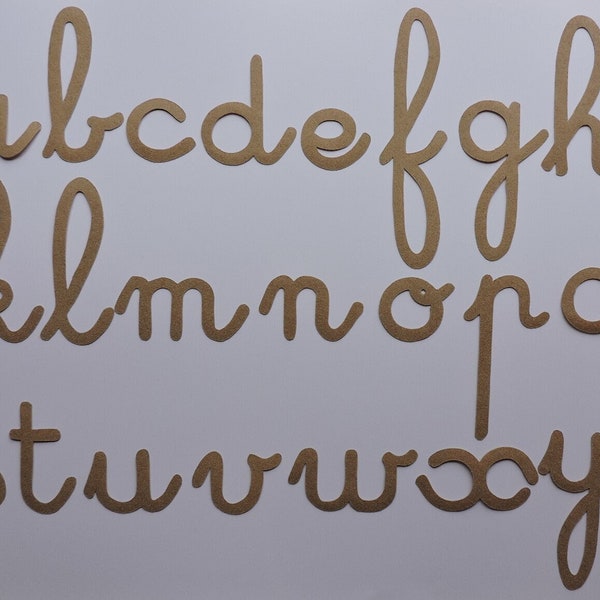 abcdefgh
klmnop
stuvwxy